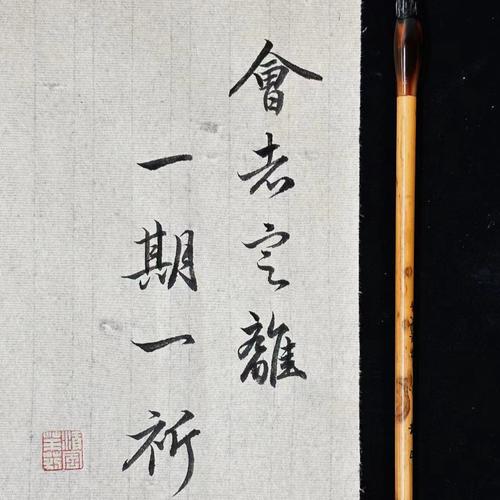 會者定離
一期一祈